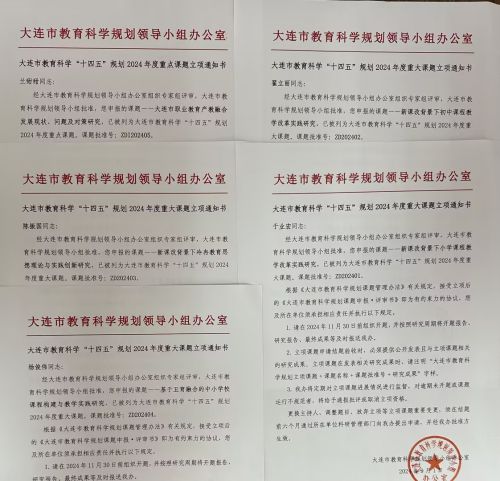 大连市教育科学规划领导小组办公室
大连市教育科学“十四五”规划2024年度重点课题立项通知书
经大连市教育科学规划领导小组办公室组织专家组评审，大连市教
育科学规划领导小组批准，您申报的课题——大连市职业教育产教融合
发展现状、问题及对策研究，已被列为大连市教育科学“十四五”规划
2024年度重点课题，课题批准号：ZDI202405。
大连市教育科学规划领导小组办公室
大连市教育科学“十四五”规划2024年度重大课题立项通知书
翟立丽同志：
经大连市教育科学规划领导小组办公室组织专家组评审，大连市教
育科学规划领导小组批准，您申报的课题——新课改背景下初中课程教
学改革实践研究，已被列为大连市教育科学“十四五”规划2024年度重
大课题，课题批准号：ZD202402。
大连市教育科学规划领导小组办公室
大连市教育科学“十四五”规划2024年度重大课题立项通知书
陈振国同志：
经大连市教育科学规划领导小组办公室组织专家组评审，大连市教
育科学规划领导小组批准，您申报的课题——新课改背景下冷冉教育思
想理论与实践创新研究，已被列为大连市教育科学“十四五”规划2024
年度重大课题，课题批准号：ZD202403。
大连市教育科学规划领导小组办公室
大连市教育科学“十四五”规划2024年度重大课题立项通知书
于业宏同志：
经大连市教育科学规划领导小组办公室组织专家组评审，大连市教
育科学规划领导小组批准，您申报的课题——新课改背景下小学课程教
学改革实践研究，已被列为大连市教育科学“十四五”规划2024年度重
大课题，课题批准号：ZD202401。
根据《大连市教育科学规划课题管理办法》有关规定，接受立项后
的《大连市教育科学规划课题申报·评审书》即为有约束力的协议，您
及所在单位须承担相应责任并执行以下规定。
1.请在2024年11月30日前组织开题，并按照研究周期将开题报告、
研究报告、最终成果等及时报送我办。
2.立项课题申请结题验收时，必须提供公开发表且与立项课题相关
的研究成果。立项课题在发表相关研究成果时，请注明“大连市教育科
学规划立项课题·课题名称·课题批准号·研究成果”字样。
3.我办将定期对立项课题进展情况进行监督，对逾期未开题或课题
运行不规范者，将给予通报批评或取消立项资格。
更换主持人、调整题目、放弃立项等立项课题重要变更，须在结题
前六个月通过所在单位科研管理部门向我办提出申请，并经我办批准方
生效。
大连市教育科学规划领导小组办公室
2024年9月1日
大连市教育科学规划领导小组办公室
大连市教育科学“十四五”规划2024年度重大课题立项通知书
杨俊伟同志：
经大连市教育科学规划领导小组办公室组织专家组评审，大连市教
育科学规划领导小组批准，您申报的课题——基于五育融合的中小学校
课程构建与教学实践研究，已被列为大连市教育科学“十四五”规划
2024年度重大课题，课题批准号：ZD202404。
根据《大连市教育科学规划课题管理办法》有关规定，接受立项后
的《大连市教育科学规划课题申报·评审书》即为有约束力的协议，您
及所在单位须承担相应责任并执行以下规定。
1.请在2024年11月30日前组织开题，并按照研究周期将开题报告、
研究报告、最终成果等及时报送我办。